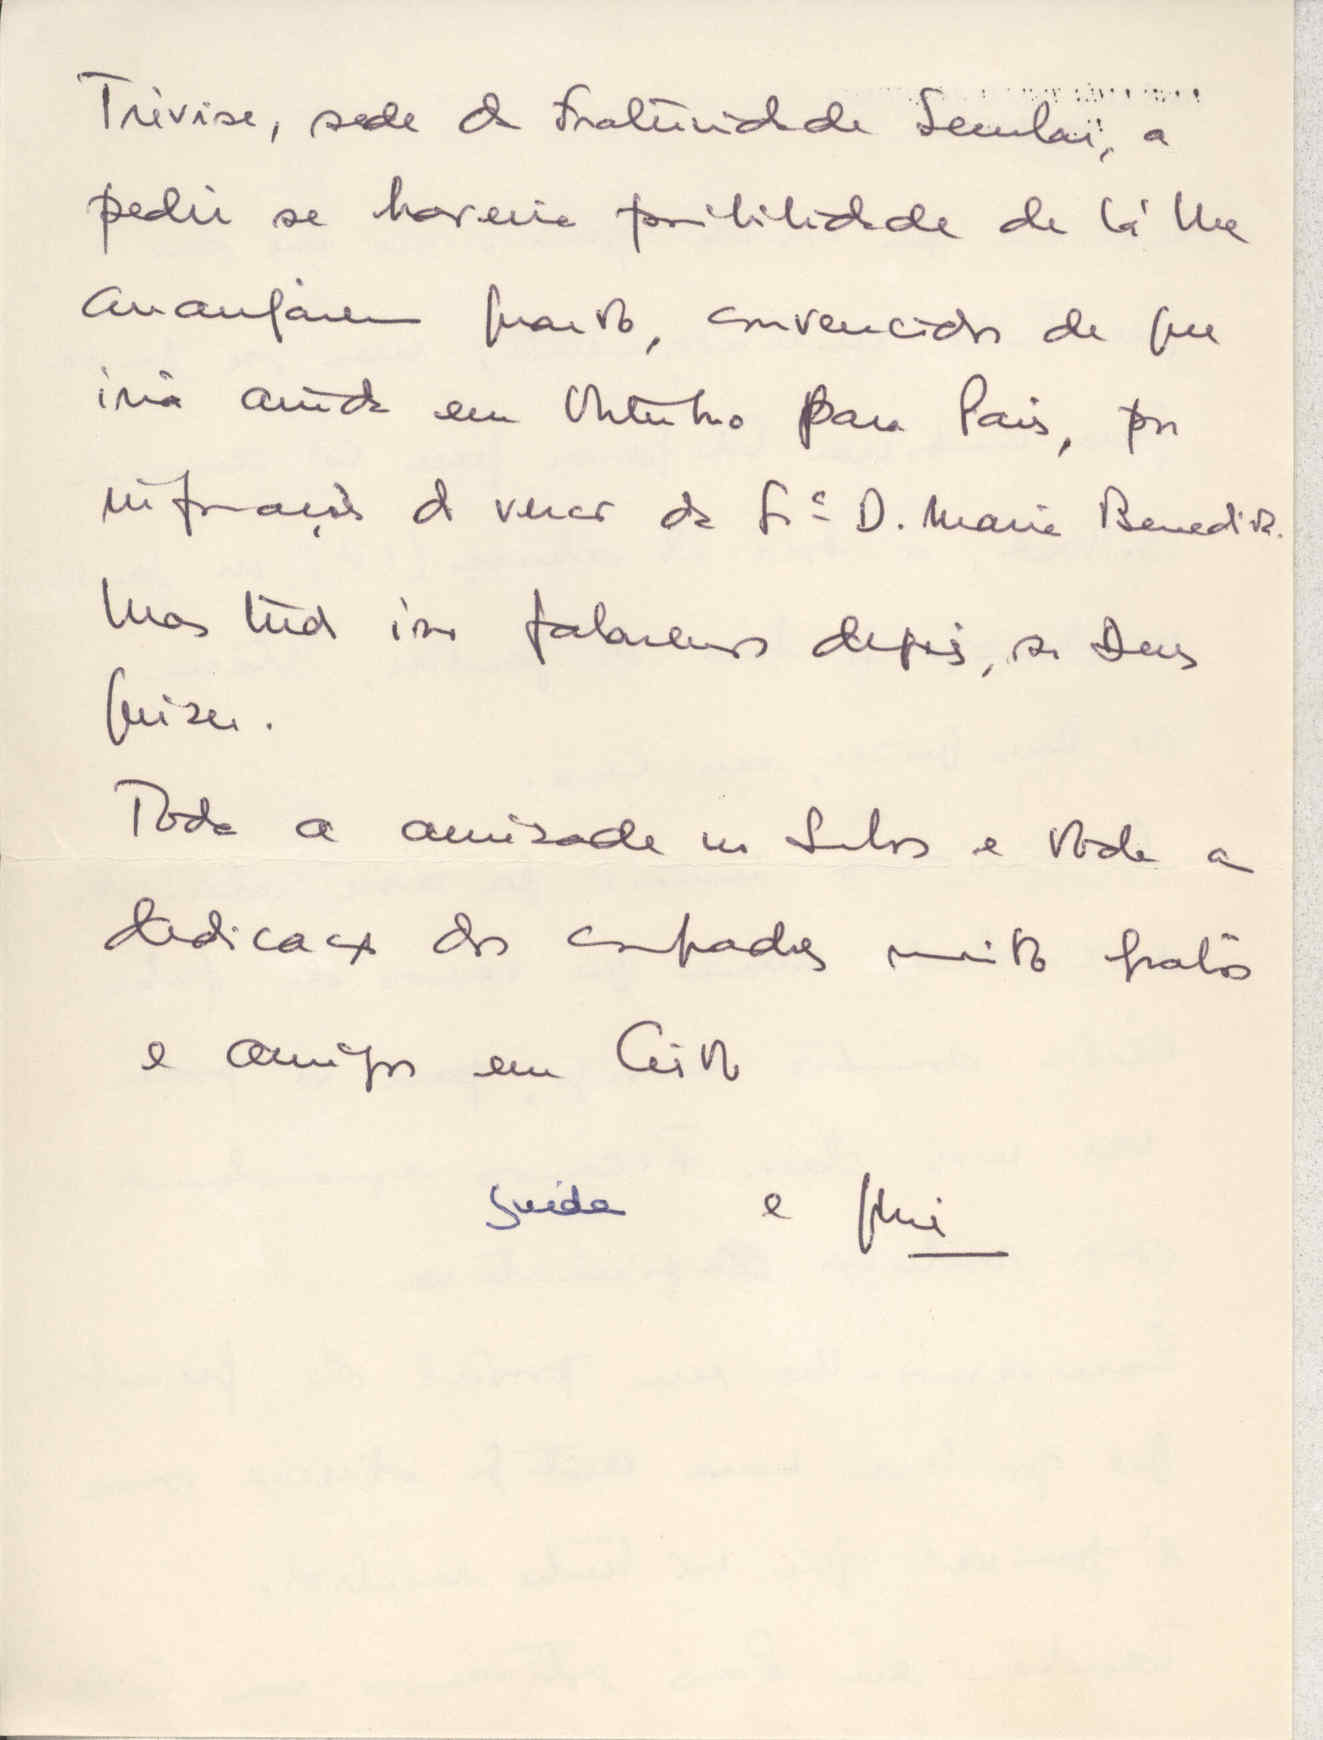 Trévise, sede da Fraternidade Secular, a
pedir se haveria possibilidade de lá lhe
arranjarem quarto, convencidos de que
iria ainda em Outubro para Paris, por
informação do vencer da Sr.ª D. Maria Benedita.
Mas tudo isso falaremos depois, se Deus
quiser.
Toda a amizade nos e toda a
dedicação dos compadres muito gratos
e amigos em Cristo
Guida e